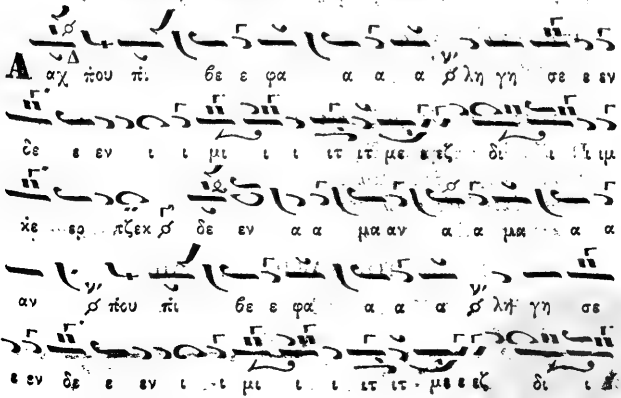 Α αχ που πι βε ε φα α α α λη γη σε ε εν
δε ε εν ι ι μι ι ι ιτ ιτ με ε εζ δι ι ι ιμ
κε ερ τζεκ δε εν α α μα αν α α μα α α
αν που πι βε ε φα α α α λη γη σε
ε εν δε ε εν ι ι μι ι ι ιτ ιτ με ε εζ δι ι